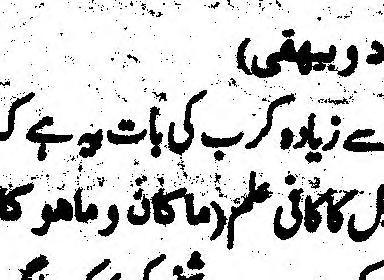 د و بیهقی)
سے زیادہ کرب کی بات یہ ہے ک
ل کا کافی علم (ما کان و ما ھو کا